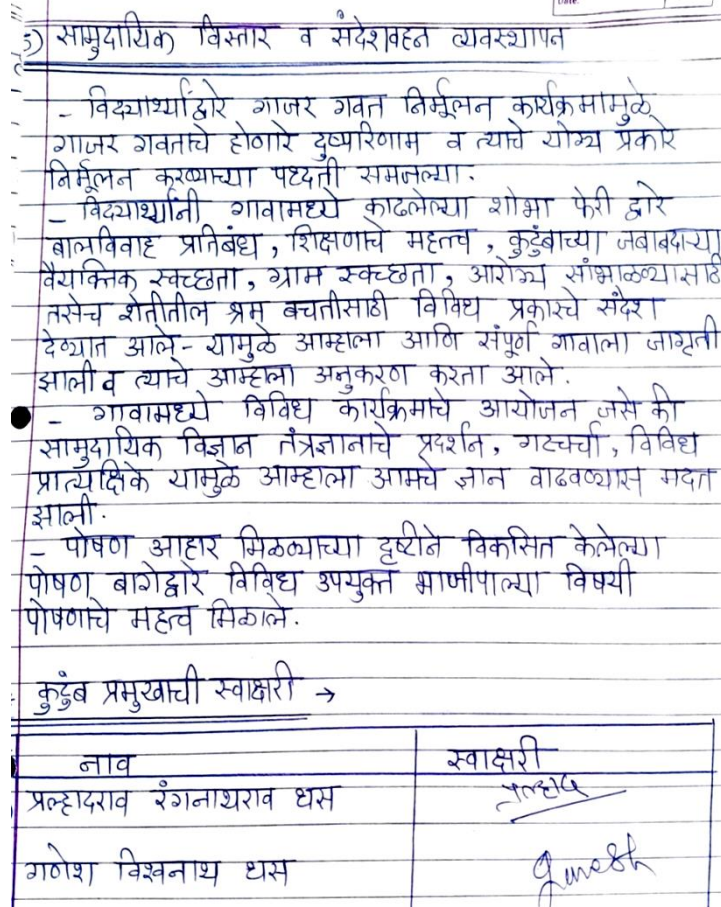 5) सामुदायिक विस्तार व संदेशवहन व्यवस्थापन
- विद्यार्थ्यांद्वारे गाजर गवत निर्मूलन कार्यक्रमामुळे
गाजर गवताचे होणारे दुष्परिणाम व त्याचे योग्य प्रकारे
निर्मूलन करण्याच्या पध्दती समजल्या.
- विद्यार्थ्यांनी गावामध्ये काढलेल्या शोभा फेरी द्वारे
बालविवाह प्रतिबंध, शिक्षणाचे महत्त्व, कुटुंबाच्या जबाबदाऱ्या
वैयक्तिक स्वच्छता, ग्राम स्वच्छता, आरोग्य सांभाळण्यासाठी
तसेच शेतीतील श्रम बचतीसाठी विविध प्रकारचे संदेश
देण्यात आले- यामुळे आम्हाला आणि संपूर्ण गावाला जागृती
झाली व त्याचे आम्हाला अनुकरण करता आले.
- गावामध्ये विविध कार्यक्रमाचे आयोजन जसे की
सामुदायिक विज्ञान तंत्रज्ञानाचे प्रदर्शन, गटचर्चा, विविध
प्रात्यक्षिके यामुळे आम्हाला आमचे ज्ञान वाढवण्यास मदत
झाली.
- पोषण आहार मिळण्याच्या दृष्टीने विकसित केलेल्या
पोषण बागेद्वारे विविध उपयुक्त भाजीपाल्या विषयी
पोषणाचे महत्व मिळाले.
कुटुंब प्रमुखाची स्वाक्षरी →
नाव स्वाक्षरी
प्रल्हादराव रंगनाथराव धस प्रल्हाद
गणेश विश्वनाथ धस Ganesh